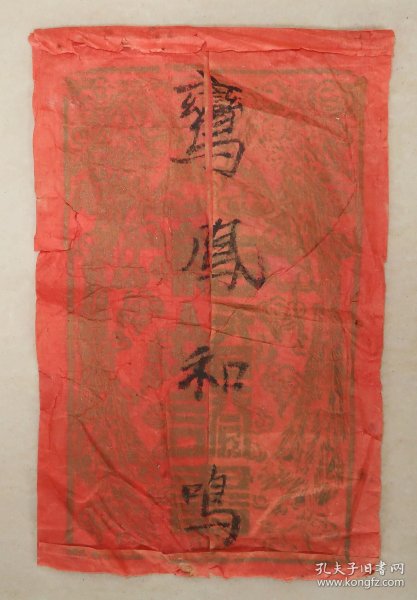 鸞鳳和鳴
孔夫子旧书网
www.kongfz.com